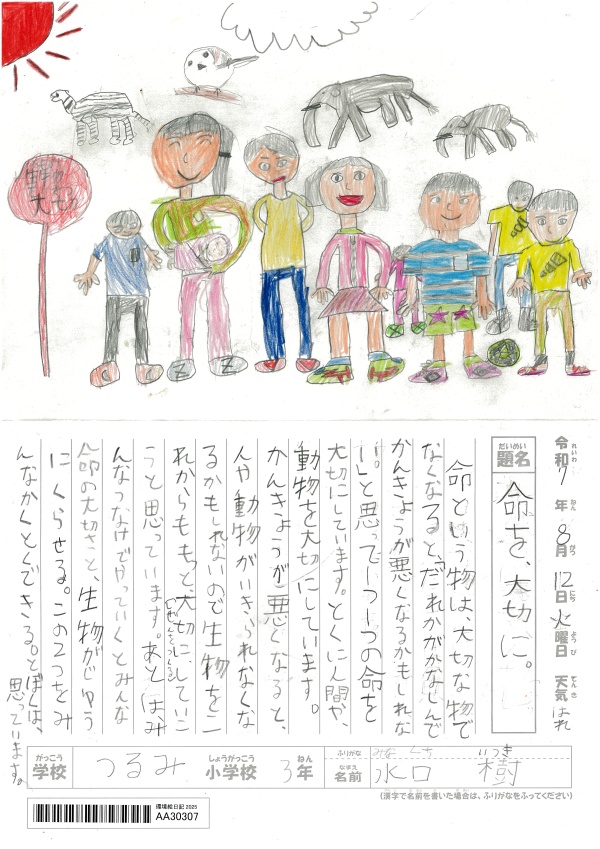 大切
令和7年8月12日火曜日 天気 はれ
れいわ ねん がつ にち ようび てんき
だいめい
題名
命を、大切に。
命という物は、大切な物で
なくなると、「だれかがかなしんで
かんきょうが悪くなるかもしれな
い。」と思って一つ一つの命を
大切にしています。とくに人間や、
動物を大切にしています。
かんきょうが悪くなると、
人や動物がいきられなくな
るかもしれないので生物をこ
れからももっと大切にしていこ
うと思っています。あとは、み
んなつなげてやっていくとみんな
命の大切さと、生物がじゆう
にくらせる。この2つをみ
んなかくとくできる。とぼくは、
思っています。
がっこう しょうがっこう ねん
学校 つるみ 小学校 3年
ふりがな みなくち いつき
なまえ
名前 水口 樹
(漢字で名前を書いた場合は、ふりがなをふってください)
環境絵日記 2025
AA30307